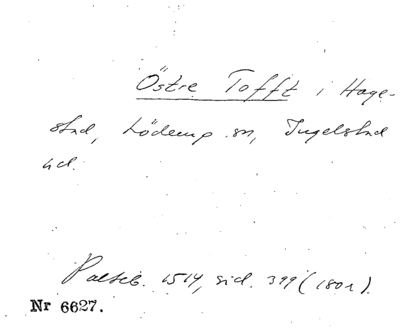 Östre Tofft i Hage-
stad, Löderup sn, Ingelstad
hd.
Palteb. 1514, sid. 399 (1801).
Nr 6627.